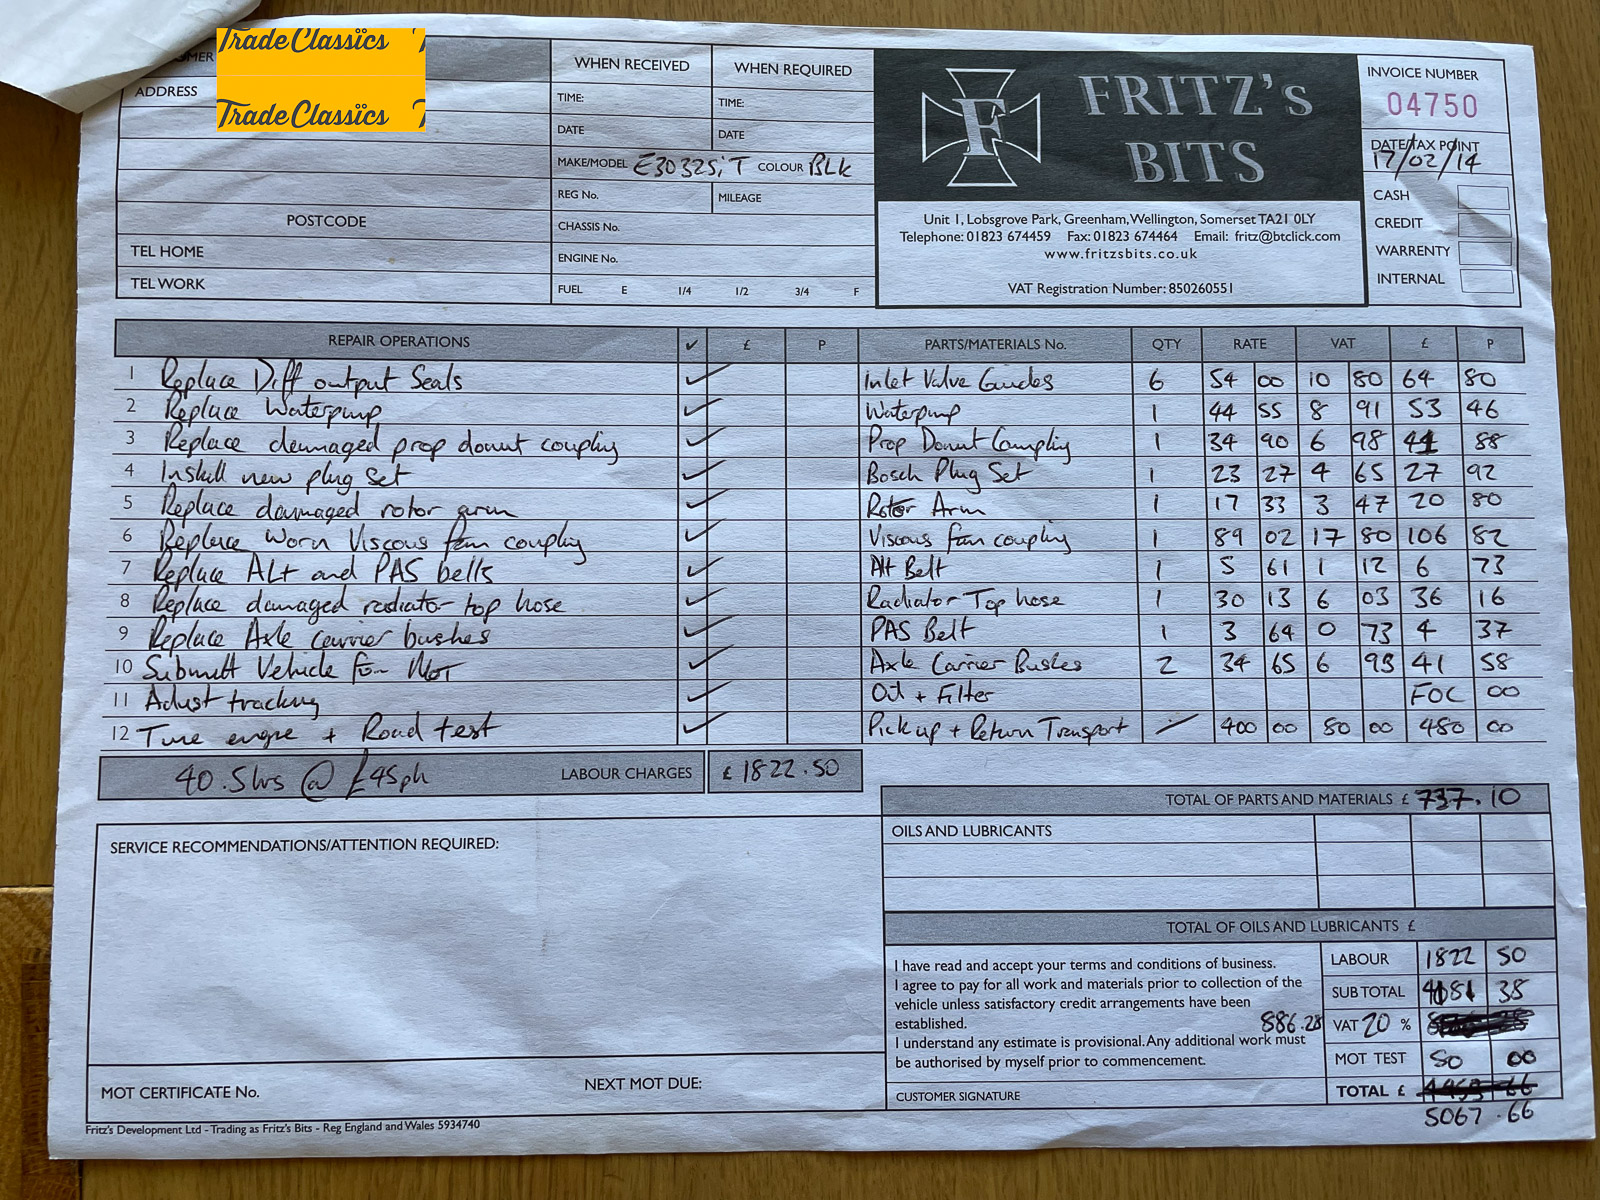 TradeClassics
TradeClassics
ADDRESS
POSTCODE
TEL HOME
TEL WORK
WHEN RECEIVED
WHEN REQUIRED
TIME:
TIME:
DATE
DATE
MAKE/MODEL E30 325i T COLOUR BLK
REG No.
MILEAGE
CHASSIS No.
ENGINE No.
FUEL E 1/4 1/2 3/4 F
F
FRITZ's
BITS
Unit 1, Lobsgrove Park, Greenham, Wellington, Somerset TA21 0LY
Telephone: 01823 674459 Fax: 01823 674464 Email: fritz@btclick.com
www.fritzsbits.co.uk
VAT Registration Number: 850260551
INVOICE NUMBER
04750
DATE/TAX POINT
17/02/14
CASH
CREDIT
WARRENTY
INTERNAL
REPAIR OPERATIONS ✓ £ P
1 Replace Diff output Seals ✓
2 Replace Waterpump ✓
3 Replace damaged prop donut coupling ✓
4 Install new plug Set ✓
5 Replace damaged rotor arm ✓
6 Replace Worn Viscous fan coupling ✓
7 Replace ALt and PAS belts ✓
8 Replace damaged radiator top hose ✓
9 Replace Axle carrier bushes ✓
10 Submitt Vehicle for MOT ✓
11 Adjust tracking ✓
12 Tune engine + Road test ✓
40.5hrs @ £45ph LABOUR CHARGES £ 1822.50
PARTS/MATERIALS No. QTY RATE VAT £ P
Inlet Valve Guides 6 54 00 10 80 64 80
Waterpump 1 44 55 8 91 53 46
Prop Donut Coupling 1 34 90 6 98 41 88
Bosch Plug Set 1 23 27 4 65 27 92
Rotor Arm 1 17 33 3 47 20 80
Viscous fan coupling 1 89 02 17 80 106 82
Alt Belt 1 5 61 1 12 6 73
Radiator Top hose 1 30 13 6 03 36 16
PAS Belt 1 3 64 0 73 4 37
Axle Carrier Bushes 2 34 65 6 93 41 58
Oil + Filter FOC 00
Pick up + Return Transport 400 00 80 00 480 00
TOTAL OF PARTS AND MATERIALS £ 737.10
OILS AND LUBRICANTS
TOTAL OF OILS AND LUBRICANTS £
SERVICE RECOMMENDATIONS/ATTENTION REQUIRED:
MOT CERTIFICATE No.
NEXT MOT DUE:
I have read and accept your terms and conditions of business.
I agree to pay for all work and materials prior to collection of the
vehicle unless satisfactory credit arrangements have been
established.
I understand any estimate is provisional. Any additional work must
be authorised by myself prior to commencement.
CUSTOMER SIGNATURE
LABOUR 1822 50
SUB TOTAL 4181 38
886.28 VAT 20 %
MOT TEST 50 00
TOTAL £
5067.66
Fritz's Development Ltd - Trading as Fritz's Bits - Reg England and Wales 5934740